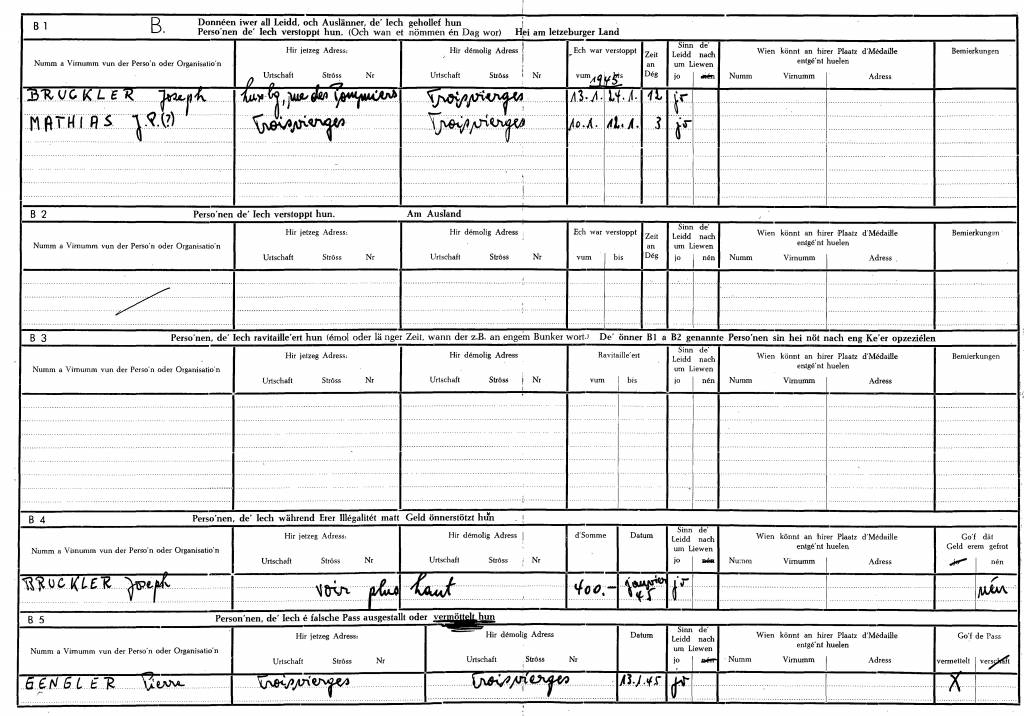 B 1 B. Donnéen iwer all Leidd, och Auslänner, de' Iech gehollef hun
Perso'nen de' Iech verstoppt hun. (Och wan et nömmen én Dag wor) Hei am letzeburger Land
Numm a Virnumm vun der Perso'n oder Organisatio'n Hir jetzeg Adress: Hir démolig Adress Ech war verstoppt Zeit an Dég Sinn de' Leidd nach um Liewen Wien könnt an hirer Plaatz d'Médaille entgé'nt huelen Bemierkungen
Urtschaft Ströss Nr Urtschaft Ströss Nr vum 1945 bis jo nén Numm Virnumm Adress
BRUCKLER Joseph Luxbg, rue des Pompiers Troisvierges 13.1. 24.1. 12 jo
MATHIAS J.P.(?) Troisvierges Troisvierges 10.1. 12.1. 3 jo
B 2 Perso'nen de' Iech verstoppt hun. Am Ausland
Numm a Virnumm vun der Perso'n oder Organisatio'n Hir jetzeg Adress: Hir démolig Adress Ech war verstoppt Zeit an Dég Sinn de' Leidd nach um Liewen Wien könnt an hirer Plaatz d'Médaille entgé'nt huelen Bemierkungen
Urtschaft Ströss Nr Urtschaft Ströss Nr vum bis jo nén Numm Virnumm Adress
B 3 Perso'nen, de' Iech ravitaille'ert hun (émol oder länger Zeit, wann der z.B. an engem Bunker wort.) De' önner B1 a B2 genannte Perso'nen sin hei nöt nach eng Ke'er opzeziélen
Numm a Virnumm vun der Perso'n oder Organisatio'n Hir jetzeg Adress: Hir démolig Adress Ravitaille'ert Sinn de' Leidd nach um Liewen Wien könnt an hirer Plaatz d'Médaille entgé'nt huelen Bemierkungen
Urtschaft Ströss Nr Urtschaft Ströss Nr vum bis jo nén Numm Virnumm Adress
B 4 Perso'nen, de' Iech während Erer Illégalitét matt Geld önnerstötzt hun
Numm a Virnumm vun der Perso'n oder Organisatio'n Hir jetzeg Adress: Hir démolig Adress d'Somme Datum Sinn de' Leidd nach um Liewen Wien könnt an hirer Plaatz d'Médaille entgé'nt huelen Go'f dât Geld erem gefrot
Urtschaft Ströss Nr Urtschaft Ströss Nr jo nén Numm Virnumm Adress jo nén
BRUCKLER Joseph voir plus haut 400.- janvier 45 jo nén
B 5 Person'nen, de' Iech é falsche Pass ausgestallt oder vermöttelt hun
Numm a Virnumm vun der Perso'n oder Organisatio'n Hir jetzeg Adress: Hir démolig Adress Datum Sinn de' Leidd nach um Liewen Wien könnt an hirer Plaatz d'Médaille entgé'nt huelen Go'f de Pass
Urtschaft Ströss Nr Urtschaft Ströss Nr jo nén Numm Virnumm Adress vermettelt verschaft
GENGLER Pierre Troisvierges Troisvierges 13.1.45 jo X